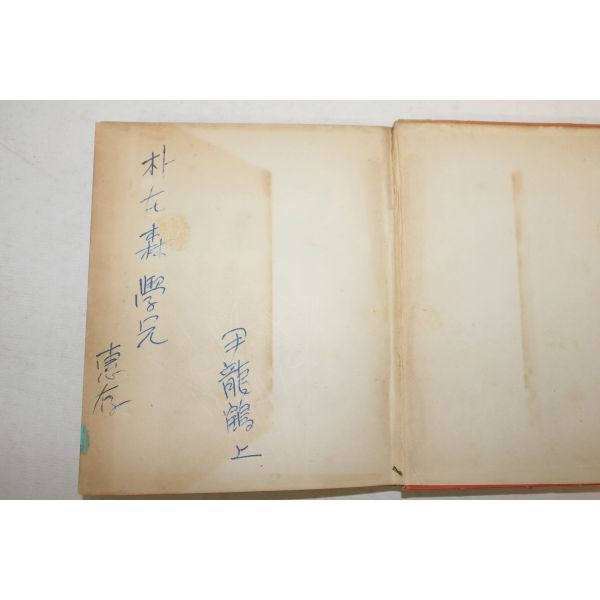 朴在森學兄
惠存
龍鶴 上